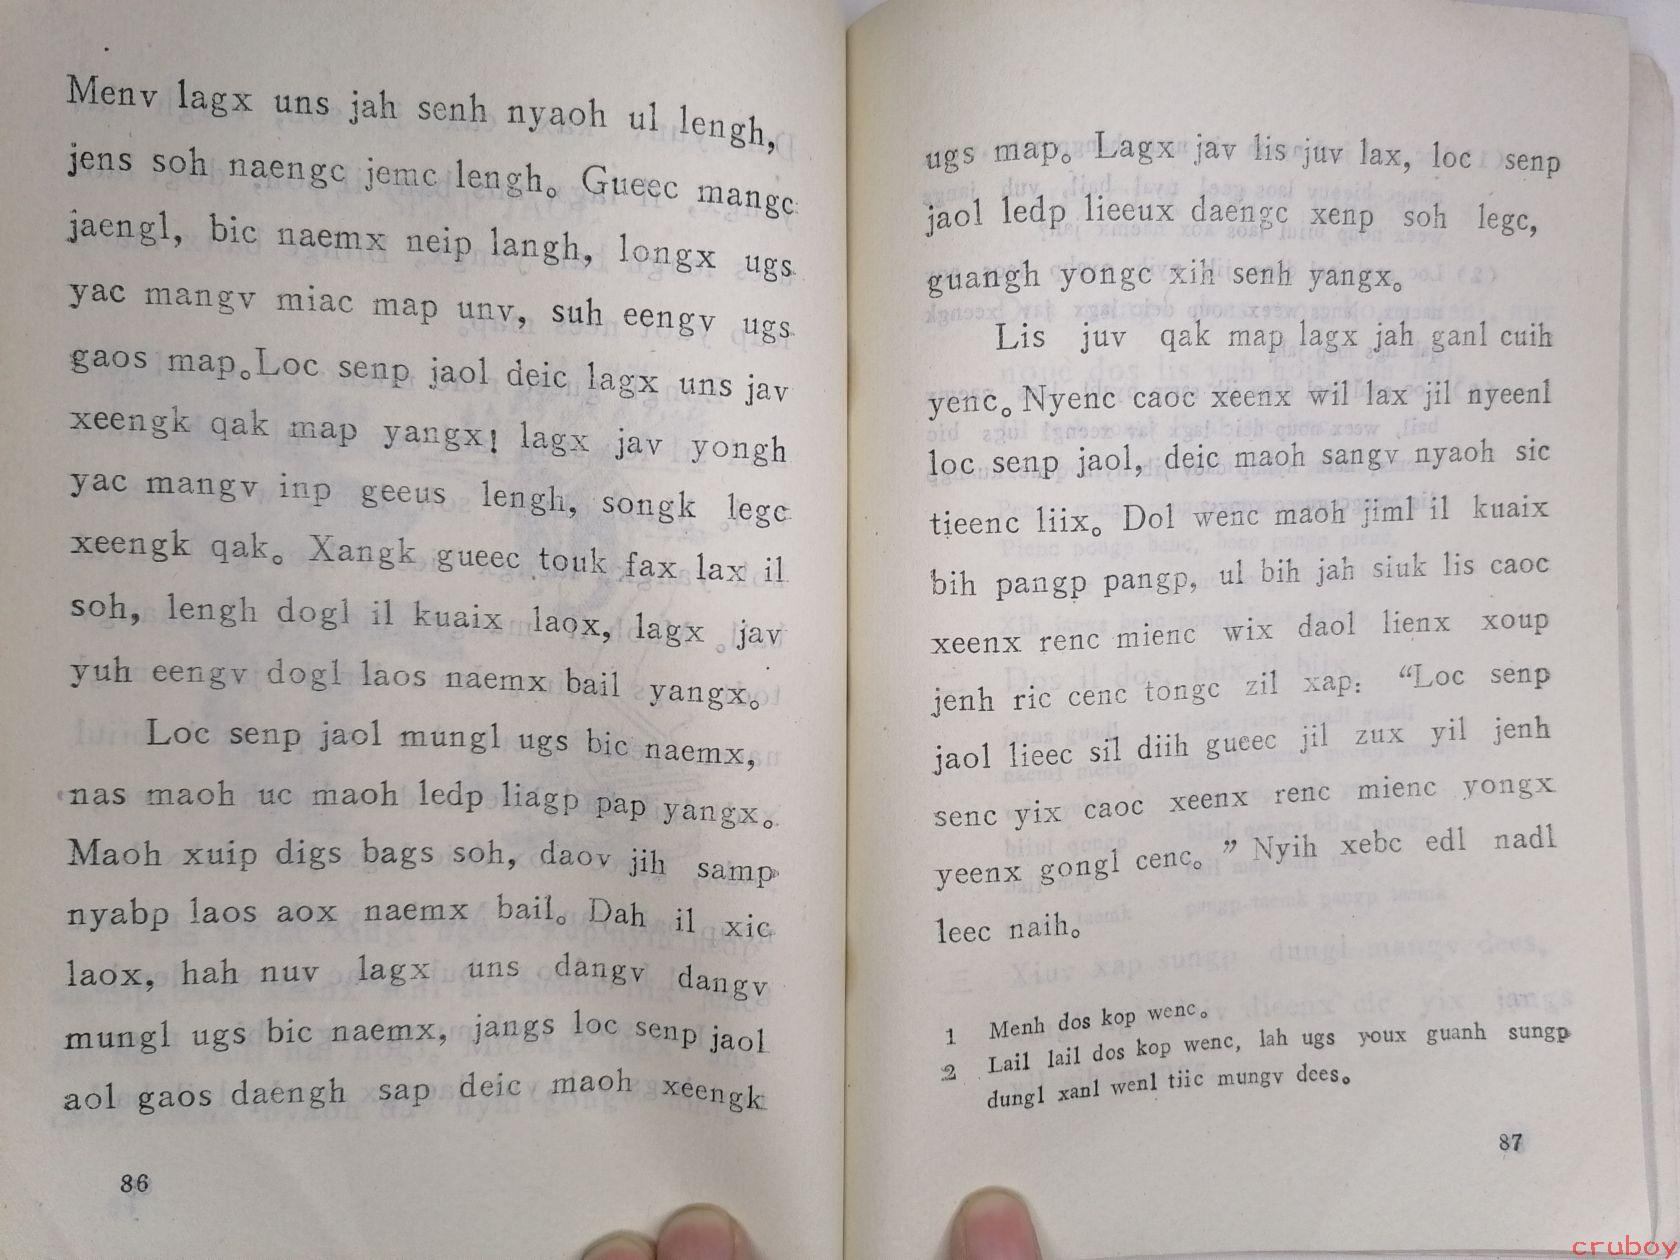 Menv lagx uns jah senh nyaoh ul lengh,
jens soh naengc jemc lengh。 Gueec mangc
jaengl, bic naemx neip langh, longx ugs
yac mangv miac map unv, suh eengv ugs
gaos map。Loc senp jaol deic lagx uns jav
xeengk qak map yangx! lagx jav yongh
yac mangv inp geeus lengh, songk legc
xeengk qak。 Xangk gueec touk fax lax il
soh, lengh dogl il kuaix laox, lagx jav
yuh eengv dogl laos naemx bail yangx。
Loc senp jaol mungl ugs bic naemx,
nas maoh uc maoh ledp liagp pap yangx。
Maoh xuip digs bags soh, daov jih samp
nyabp laos aox naemx bail。 Dah il xic
laox, hah nuv lagx uns dangv dangv
mungl ugs bic naemx, jangs loc senp jaol
aol gaos daengh sap deic maoh xeengk
86
ugs map。 Lagx jav lis juv lax, loc senp
jaol ledp lieeux daengc xenp soh legc,
guangh yongc xih senh yangx。
Lis juv qak map lagx jah ganl cuih
yenc。Nyenc caoc xeenx wil lax jil nyeenl
loc senp jaol, deic maoh sangv nyaoh sic
tieenc liix。 Dol wenc maoh jiml il kuaix
bih pangp pangp, ul bih jah siuk lis caoc
xeenx renc mienc wix daol lienx xoup
jenh ric cenc tongc zil xap: “Loc senp
jaol lieec sil diih gueec jil zux yil jenh
senc yix caoc xeenx renc mienc yongx
yeenx gongl cenc。” Nyih xebc edl nadl
leec naih。
1 Menh dos kop wenc。
2 Lail lail dos kop wenc, lah ugs youx guanh sungp
dungl xanl wenl tiic mungv dees。
87
cruboy